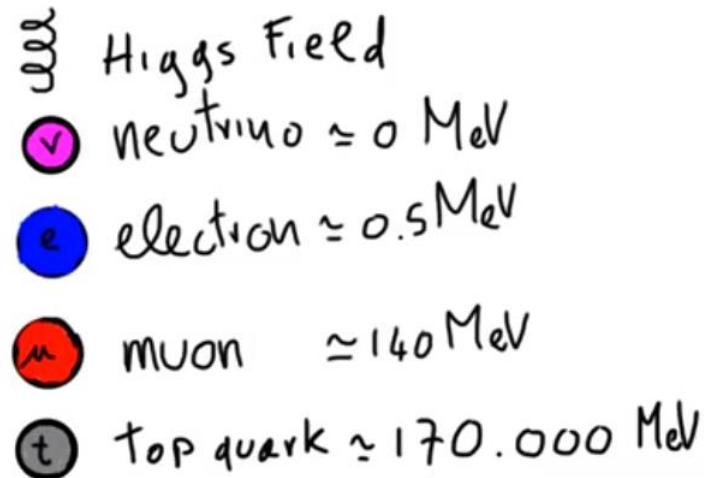 Higgs Field
ν neutrino ≃ 0 MeV
e electron ≃ 0.5 MeV
μ muon ≃ 140 MeV
t top quark ~ 170.000 MeV